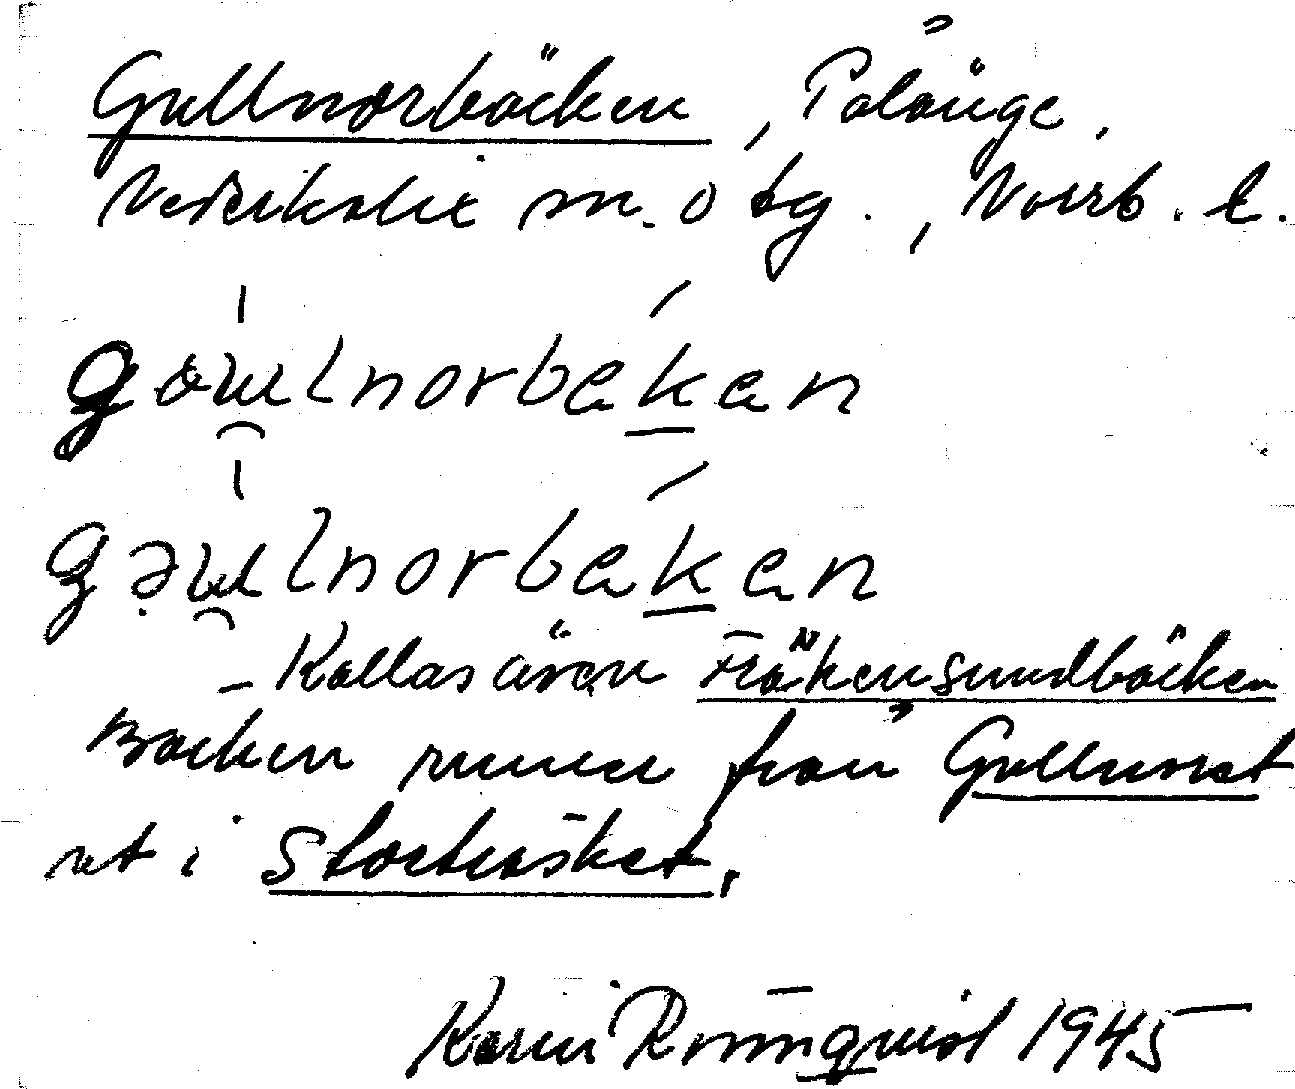 Gullnorbäcken, Pålänge,
Nederkalix sn. o tg., Norrb. l.
gɷɯlnorbekan
gəɯlnorbekan
– Kallas även Fräkensundbäcken
Bäcken rinner från Gullnoret
ut i Storträsket.
Karin Rönnquist 1945